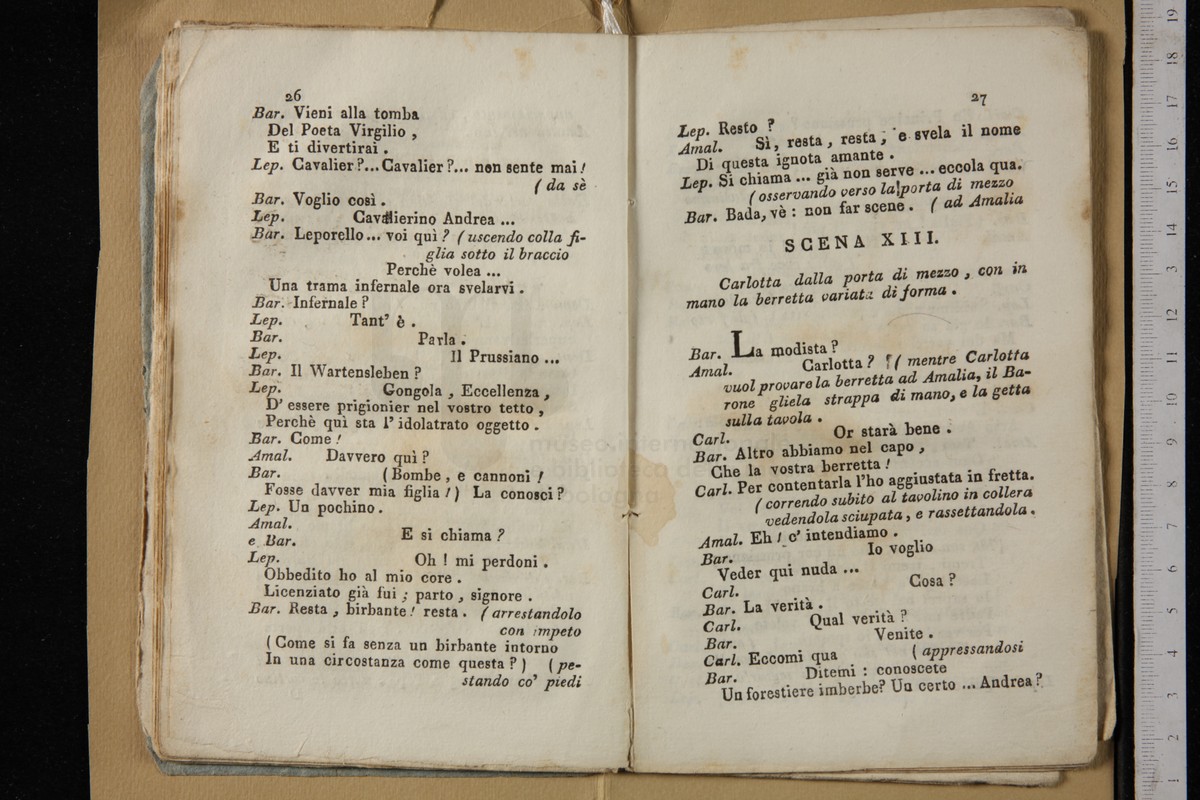 26
Bar. Vieni alla tomba
Del Poeta Virgilio ,
E ti divertirai .
Lep. Cavalier ?... Cavalier ?... non sente mai !
( da sè
Bar. Voglio così .
Lep. Cavalierino Andrea ...
Bar. Leporello ... voi quì ? ( uscendo colla fi-
glia sotto il braccio
Perchè volea ...
Una trama infernale ora svelarvi .
Bar. Infernale ?
Lep. Tant' è .
Bar. Parla .
Lep. Il Prussiano ...
Bar. Il Wartensleben ?
Lep. Gongola , Eccellenza ,
D' essere prigionier nel vostro tetto ,
Perchè quì sta l' idolatrato oggetto .
Bar. Come !
Amal. Davvero quì ?
Bar. ( Bombe , e cannoni !
Fosse davver mia figlia ! ) La conosci ?
Lep. Un pochino .
Amal.
e Bar. E si chiama ?
Lep. Oh ! mi perdoni .
Obbedito ho al mio core .
Licenziato già fui ; parto , signore .
Bar. Resta , birbante ! resta . ( arrestandolo
con impeto
( Come si fa senza un birbante intorno
In una circostanza come questa ? ) ( pe-
stando co' piedi
27
Lep. Resto ?
Amal. Sì, resta , resta ; e svela il nome
Di questa ignota amante .
Lep. Si chiama ... già non serve ... eccola qua.
( osservando verso la porta di mezzo
Bar. Bada, vè : non far scene . ( ad Amalia
SCENA XIII.
Carlotta dalla porta di mezzo , con in
mano la berretta variata di forma .
Bar. La modista ?
Amal. Carlotta ? ( mentre Carlotta
vuol provare la berretta ad Amalia, il Ba-
rone gliela strappa di mano, e la getta
sulla tavola .
Carl. Or starà bene .
Bar. Altro abbiamo nel capo ,
Che la vostra berretta !
Carl. Per contentarla l'ho aggiustata in fretta.
( correndo subito al tavolino in collera
vedendola sciupata , e rassettandola .
Amal. Eh ! c' intendiamo .
Bar. Io voglio
Veder qui nuda ...
Carl. Cosa ?
Bar. La verità .
Carl. Qual verità ?
Bar. Venite .
Carl. Eccomi qua ( appressandosi
Bar. Ditemi : conoscete
Un forestiere imberbe? Un certo ... Andrea ?